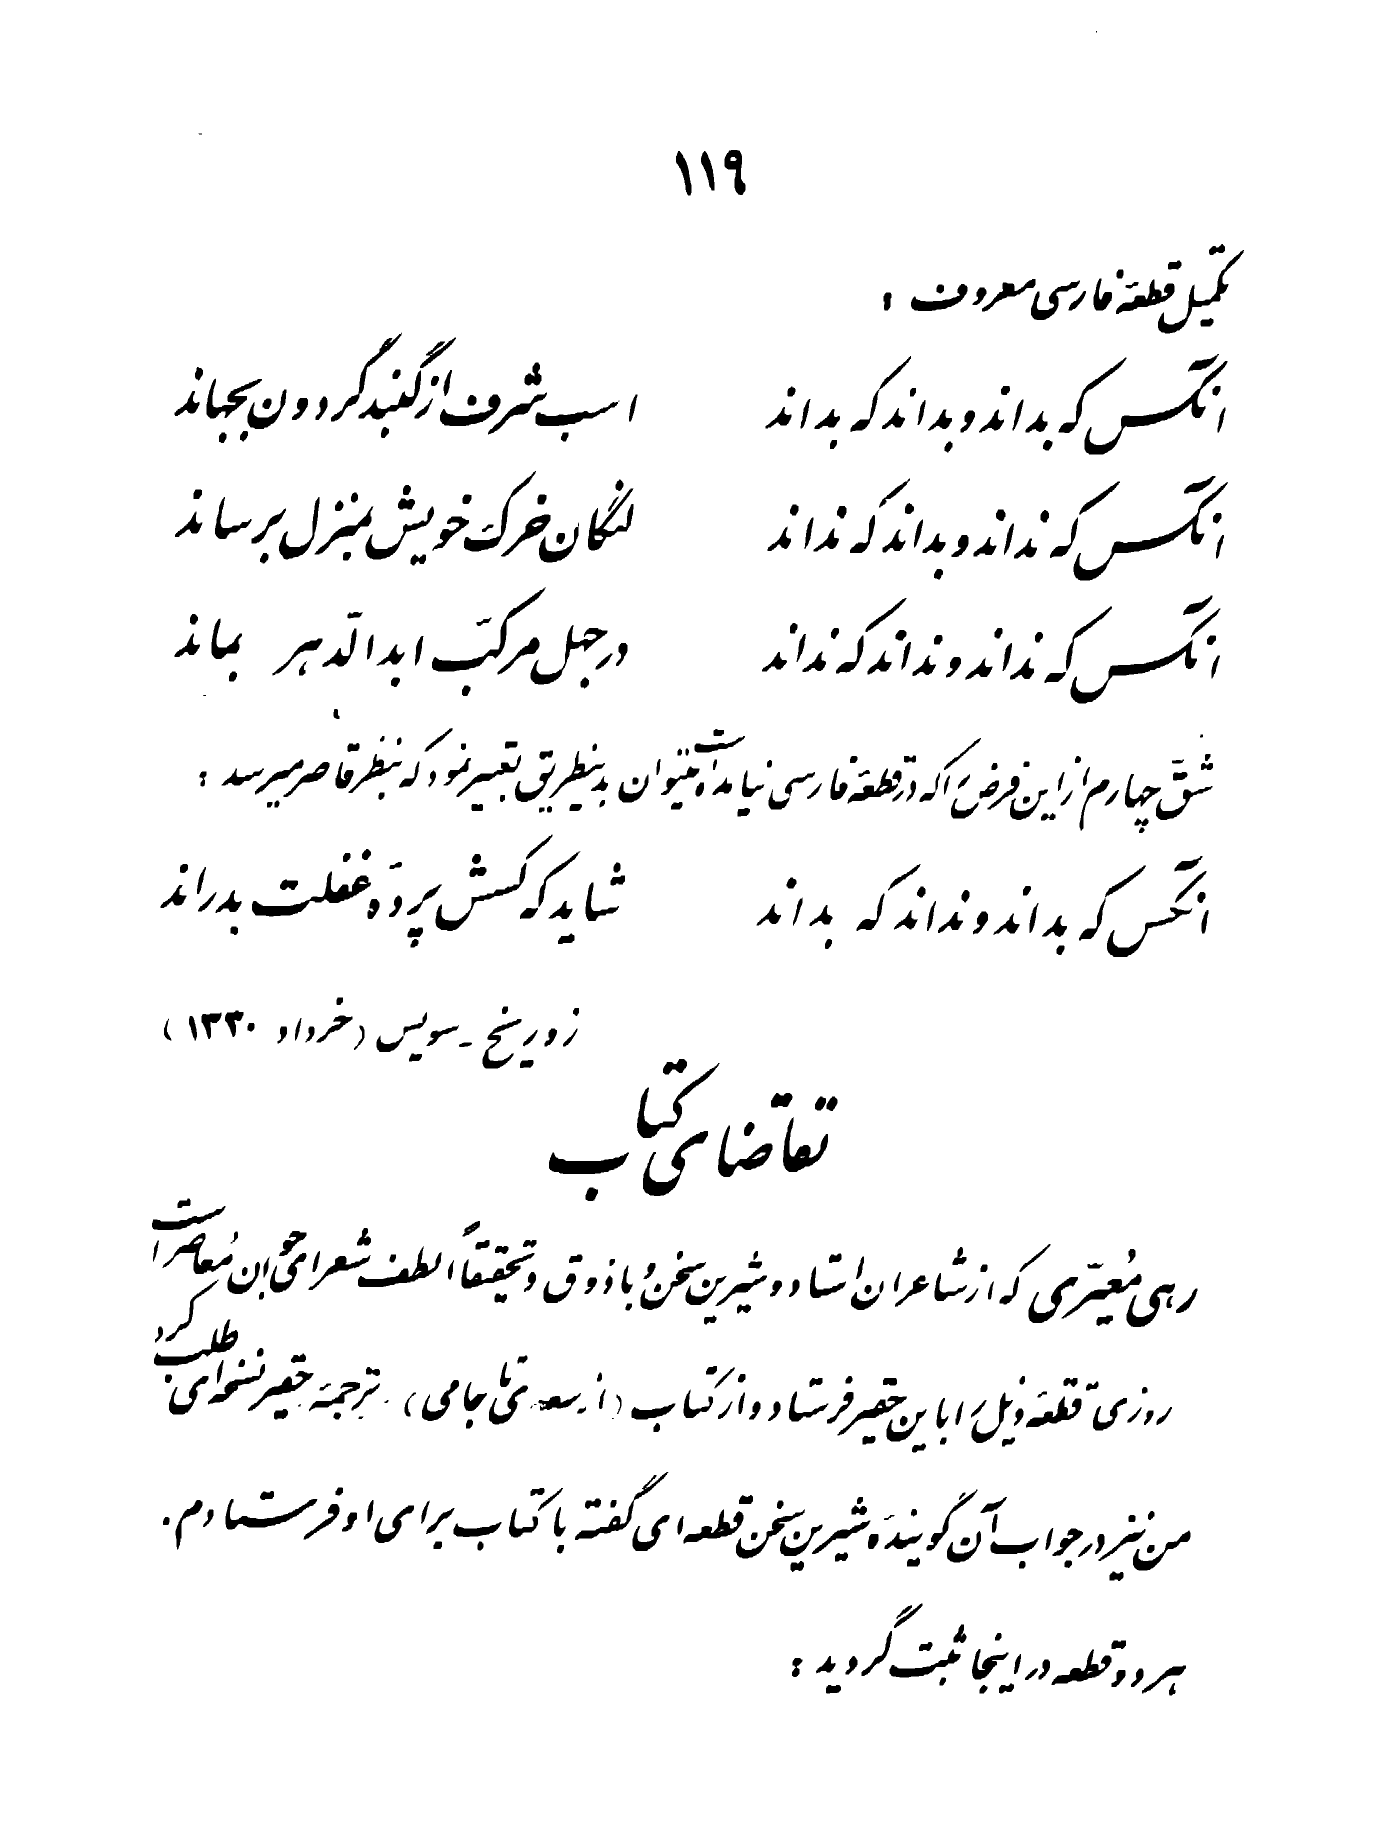 ۱۱۹
تکمیل قطعهٔ فارسی معروف :
آنکس که بداند و بداند که بداند اسب شرف از گنبد گردون بجهاند
آنکس که نداند و بداند که نداند لنگان خرک خویش بمنزل برساند
آنکس که نداند و نداند که نداند در جهل مرکّب ابدالدّهر بماند
شقّ چهارم از این فرض را که در قطعهٔ فارسی نیامده است میتوان بدینطریق تعبیر نمود که بنظر قاصر میرسد :
آنکس که بداند و نداند که بداند شاید که کسش پردهٔ غفلت بدراند
زوریخ - سویس (خرداد ۱۳۳۰)
تقاضای کتاب
رهی مُعیّری که از شاعران استاد و شیرین سخن و با ذوق و تحقیقاً الطف شعرای جوان مُعاصر است
روزی قطعهٔ ذیل را باین حقیر فرستاد و از کتاب (از سعدی تا جامی) ترجمهٔ حقیر نسخه‌ای طلب کرد
من نیز در جواب آن گویندهٔ شیرین سخن قطعه‌ای گفته با کتاب برای او فرستادم.
هر دو قطعه در اینجا ثبت گردید :